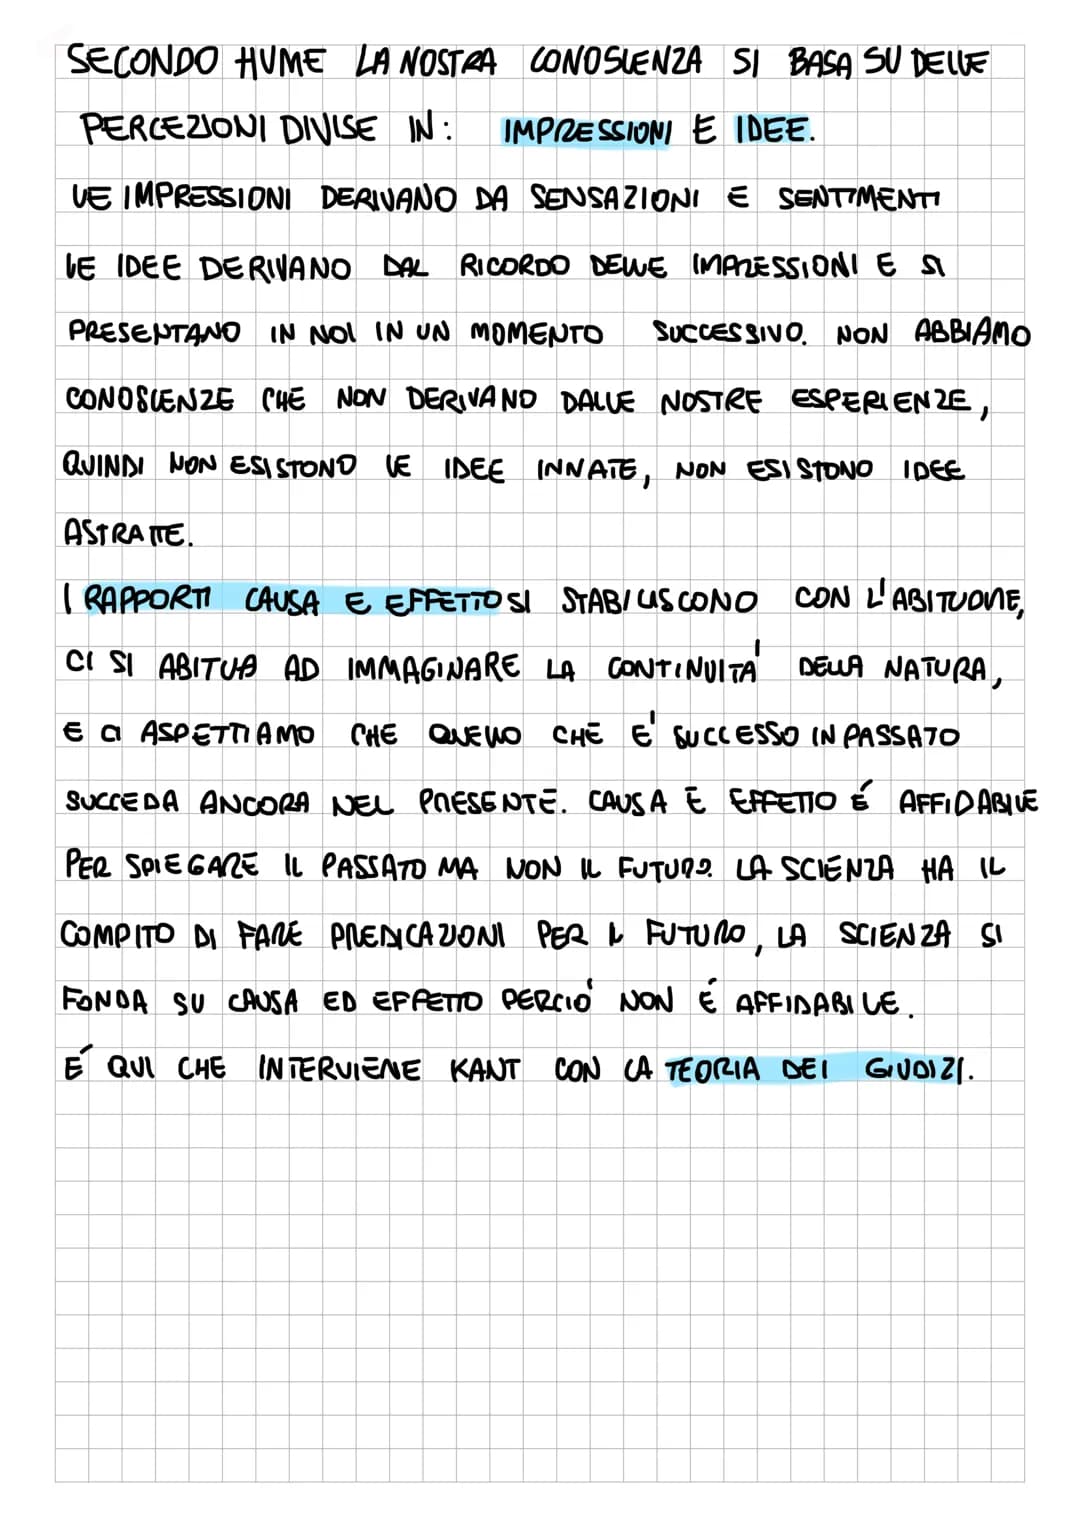 SECONDO HUME LA NOSTRA CONOSCENZA SI BASA SU DELLE
PERCEZIONI DIVISE IN: IMPRESSIONI E IDEE.
LE IMPRESSIONI DERIVANO DA SENSAZIONI E SENTIMENTI
LE IDEE DERIVANO DAL RICORDO DELLE IMPRESSIONI E SI
PRESENTANO IN NOI IN UN MOMENTO SUCCESSIVO. NON ABBIAMO
CONOSCENZE CHE NON DERIVANO DALLE NOSTRE ESPERIENZE,
QUINDI NON ESISTONO LE IDEE INNATE, NON ESISTONO IDEE
ASTRATTE.
I RAPPORTI CAUSA E EFFETTO SI STABILISCONO CON L'ABITUDINE,
CI SI ABITUA AD IMMAGINARE LA CONTINUITA' DELLA NATURA,
E CI ASPETTIAMO CHE QUELLO CHE E' SUCCESSO IN PASSATO
SUCCEDA ANCORA NEL PRESENTE. CAUSA E EFFETTO É AFFIDABILE
PER SPIEGARE IL PASSATO MA NON IL FUTURO. LA SCIENZA HA IL
COMPITO DI FARE PREDICAZIONI PER IL FUTURO, LA SCIENZA SI
FONDA SU CAUSA ED EFFETTO PERCIO' NON É AFFIDABILE.
É QUI CHE INTERVIENE KANT CON LA TEORIA DEI GIUDIZI.